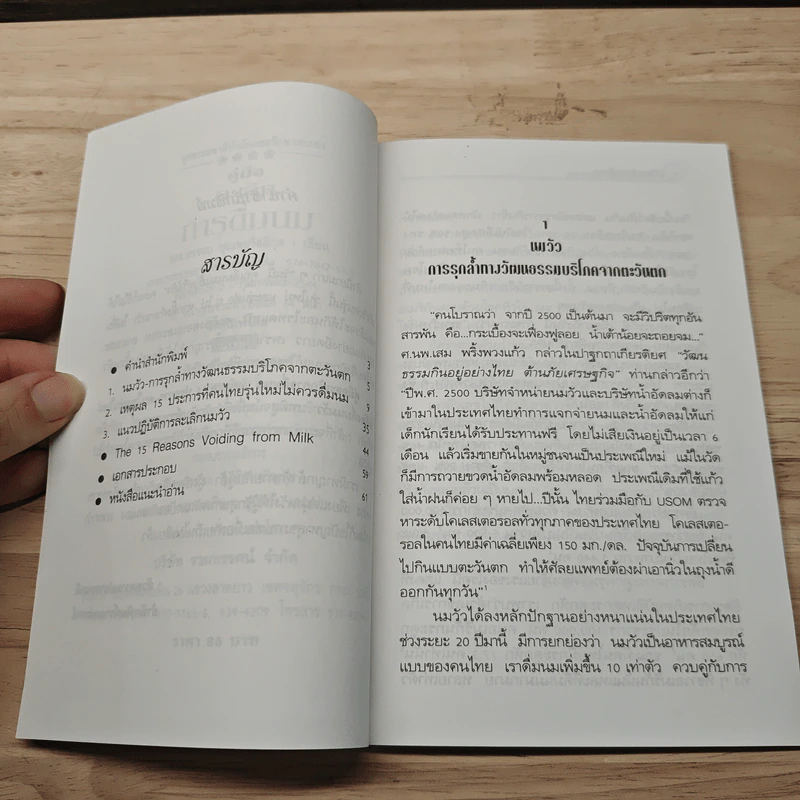 สารบัญ
● คำนำสำนักพิมพ์ 3
1. นมวัว-การรุกล้ำทางวัฒนธรรมบริโภคจากตะวันตก 5
2. เหตุผล 15 ประการที่คนไทยรุ่นใหม่ไม่ควรดื่มนม 9
3. แนวปฏิบัติการละเลิกนมวัว 35
● The 15 Reasons Voiding from Milk 44
● เอกสารประกอบ 59
● หนังสือแนะนำอ่าน 61
1
นมวัว
การรุกล้ำทางวัฒนธรรมบริโภคจากตะวันตก
"คนโบราณว่า จากปี 2500 เป็นต้นมา จะมีวิปริตทุกอัน
สารพัน คือ...กระเบื้องจะเฟื่องฟูลอย น้ำเต้าน้อยจะถอยจม..."
ศ.นพ.เสม พริ้งพวงแก้ว กล่าวในปาฐกถาเกียรติยศ "วัฒน
ธรรมกินอยู่อย่างไทย ต้านภัยเศรษฐกิจ" ท่านกล่าวอีกว่า
"ปีพ.ศ. 2500 บริษัทจำหน่ายนมวัวและบริษัทน้ำอัดลมต่างก็
เข้ามาในประเทศไทยทำการแจกจ่ายนมและน้ำอัดลมให้แก่
เด็กนักเรียนได้รับประทานฟรี โดยไม่เสียเงินอยู่เป็นเวลา 6
เดือน แล้วเริ่มขายกันในหมู่ชนจนเป็นประเพณีใหม่ แม้ในวัด
ก็มีการถวายขวดน้ำอัดลมพร้อมหลอด ประเพณีเดิมที่ใช้แก้ว
ใส่น้ำฝนก็ค่อย ๆ หายไป...ปีนั้น ไทยร่วมมือกับ USOM ตรวจ
หาระดับโคเลสเตอรอลทั่วทุกภาคของประเทศไทย โคเลสเตอ-
รอลในคนไทยมีค่าเฉลี่ยเพียง 150 มก./ดล. ปัจจุบันการเปลี่ยน
ไปกินแบบตะวันตก ทำให้ศัลยแพทย์ต้องผ่าเอานิ่วในถุงน้ำดี
ออกกันทุกวัน"1
นมวัวได้ลงหลักปักฐานอย่างหนาแน่นในประเทศไทย
ช่วงระยะ 20 ปีมานี้ มีการยกย่องว่า นมวัวเป็นอาหารสมบูรณ์
แบบของคนไทย เราดื่มนมเพิ่มขึ้น 10 เท่าตัว ควบคู่กับการ